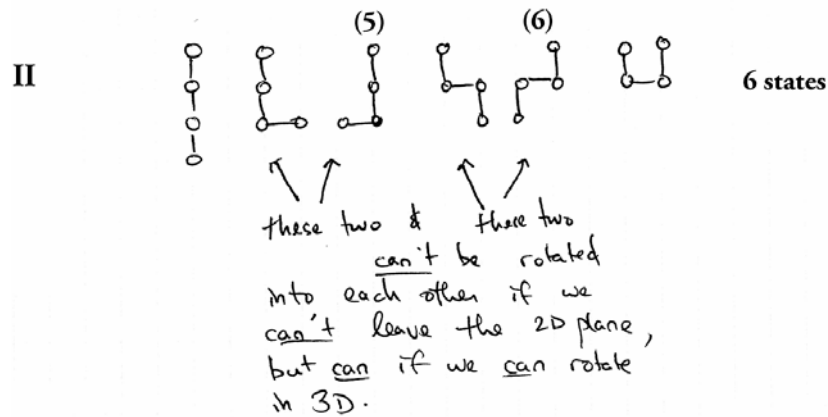 (5) (6)
II 6 states
these two & these two
can't be rotated
into each other if we
can't leave the 2D plane,
but can if we can rotate
in 3D.